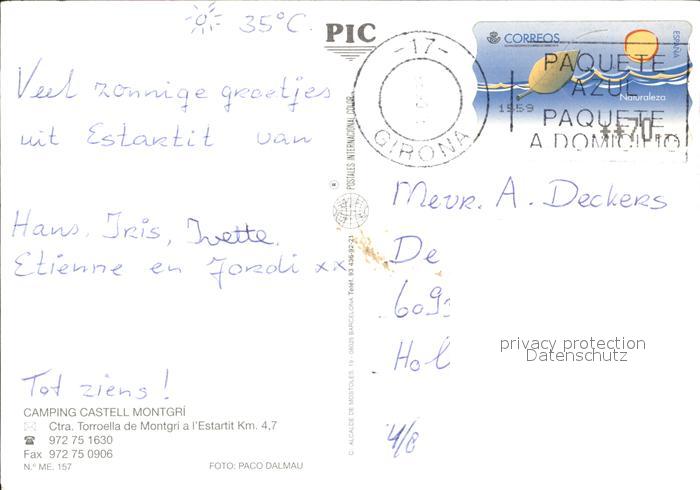 35°C.
Veel zonnige groetjes
uit Estartit van
Hans, Iris, Ivette,
Etienne en Jordi xx
Tot ziens!
CAMPING CASTELL MONTGRÍ
Ctra. Torroella de Montgrí a l'Estartit Km. 4,7
972 75 1630
Fax 972 75 0906
N.º ME. 157
FOTO: PACO DALMAU
PIC
POSTALES INTERNACIONAL COLOR
C. ALCALDE DE MOSTOLES, 19 - 08025 BARCELONA Teléf. 93 436-92-21
-17-
GIRONA
1559
CORREOS
ESPAÑA
Naturaleza
PAQUETE
AZUL
PAQUETE
A DOMICILIO
Mevr. A. Deckers
De
609
Hol
4/8
privacy protection
Datenschutz